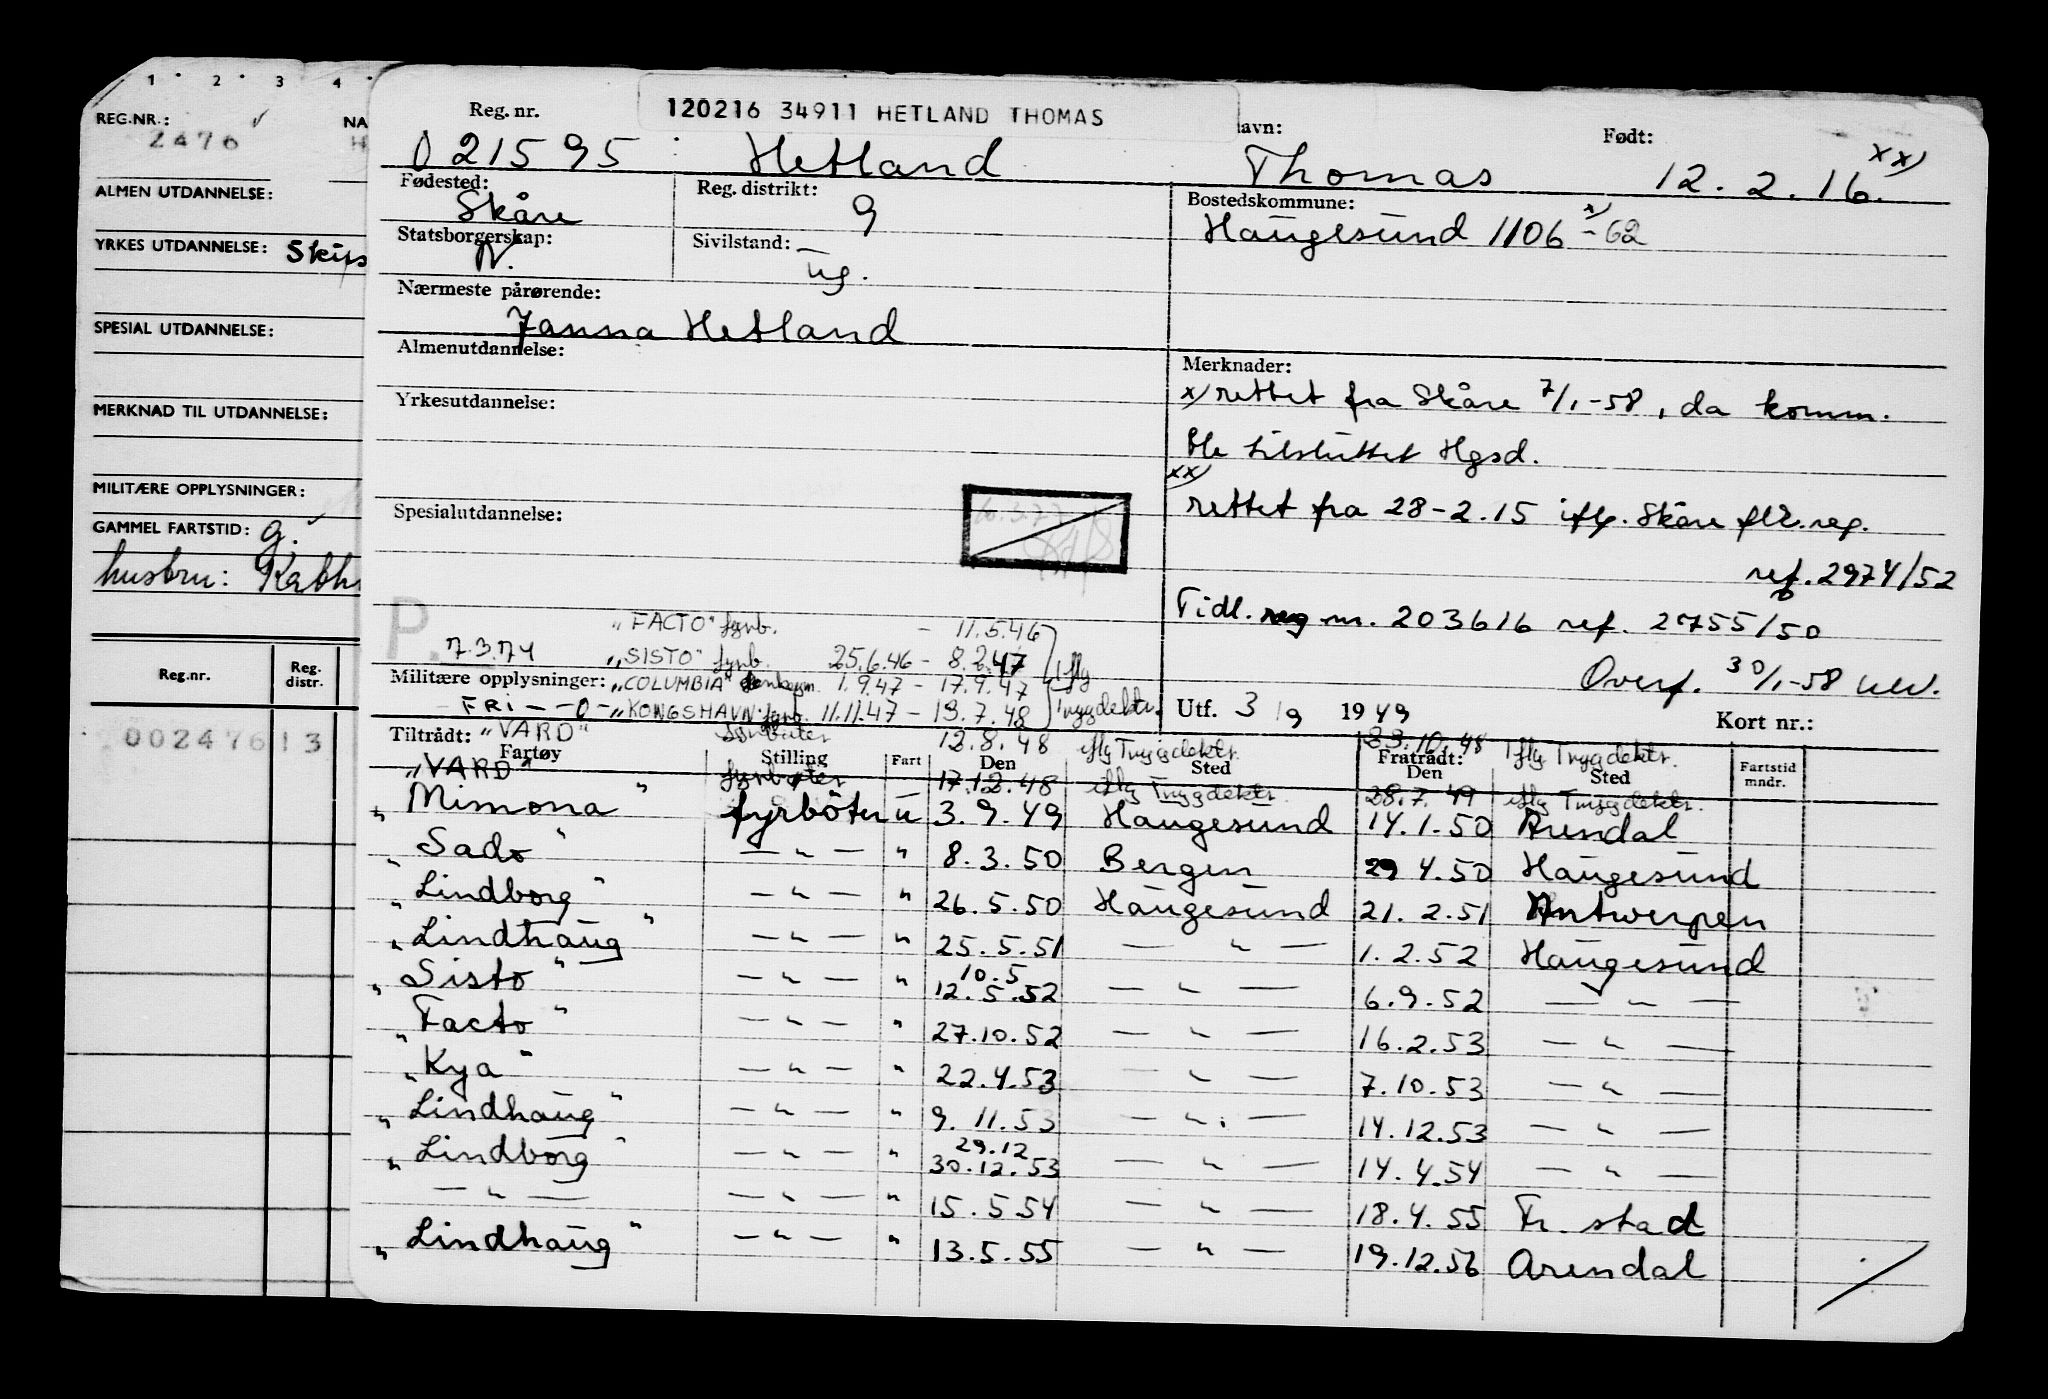 1 2 3 4
REG.NR.: 2476 NA H
ALMEN UTDANNELSE:
YRKES UTDANNELSE: Skips
SPESIAL UTDANNELSE:
MERKNAD TIL UTDANNELSE:
MILITÆRE OPPLYSNINGER:
GAMMEL FARTSTID: g.
husbru: Kath
Reg.nr. Reg. distr.
002476 13
120216 34911 HETLAND THOMAS
Reg. nr. avn: Født:
021595 Hetland Thomas 12.2.16. xx)
Fødested: Skåre Reg. distrikt: 9 Bostedskommune:
Haugesund 1106 x) - 62
Statsborgerskap: N. Sivilstand: ug.
Nærmeste pårørende:
Janna Hetland
Almenutdannelse:
Yrkesutdannelse:
Spesialutdannelse:
Merknader:
x) rettet fra Skåre 7/1-58, da komm.
ble tilsluttet Hgsd.
xx)
rettet fra 28-2.15 iflg. Skåre flk.reg.
ref. 2974/52
Tidl. reg nr. 203616 ref. 2755/50
Overf. 30/1-58
P.
"FACTO" fyrb. - 11.5.46
7.3.74 "SISTO" fyrb. 25.6.46 - 8.2.47 iflg
Militære opplysninger: "COLUMBIA" 1.9.47 - 17.9.47
FRI - -0- "KONGSHAVN" fyrb. 11.11.47 - 19.7.48 Trygdektr.
Utf. 3/9 1949 Kort nr.:
Tiltrådt: "VARD" fyrbøter 12.8.48 iflg Trygdektr. 23.10.48 iflg Trygdektr.
Fartøy Stilling Fart Den Sted Fratrådt: Den Sted Fartstid mndr.
"VARD" fyrbøter 17.12.48 iflg Trygdektr. 28.7.49 iflg Trygdektr.
"Mimona" fyrböter u 3.9.49 Haugesund 14.1.50 Arendal
"Sado" — " — " 8.3.50 Bergen 29 4.50 Haugesund
"Lindborg" — " — " 26.5.50 Haugesund 21.2.51 Antwerpen
"Lindhaug" — " — " 25.5.51 — " — 1.2.52 Haugesund
10.5
"Sisto" — " — " 12.5.52 — " — 6.9.52 — " —
"Facto" — " — " 27.10.52 — " — 16.2.53 — " —
"Kya" — " — " 22.4.53 — " — 7.10.53 — " —
"Lindhaug" — " — " 9.11.53 — " — 14.12.53 — " —
29.12
"Lindborg" — " — " 30.12.53 — " — 14.4.54 — " —
— " — — " — " 15.5.54 — " — 18.4.55 Fr. stad
"Lindhaug" — " — " 13.5.55 — " — 19.12.56 Arendal